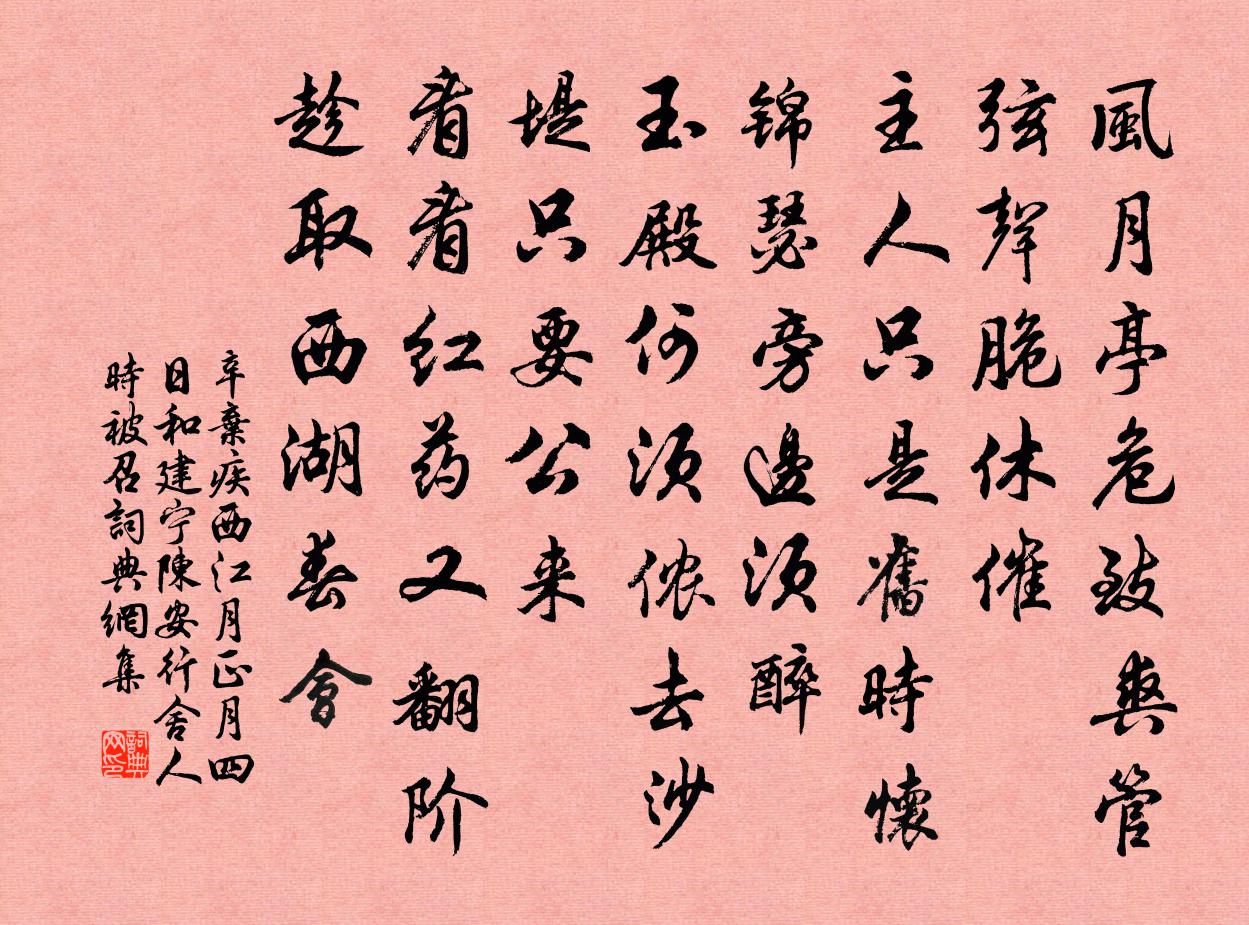 風月亭危致爽管
弦聲脆休催
主人只是舊時懷
錦瑟旁邊須醉
玉殿何須侬去沙
堤只要公来
看看红药又翻阶
趁取西湖春會
辛棄疾西江月正月四
日和建宁陳安行舍人
時被召詞典網集
詞典网印